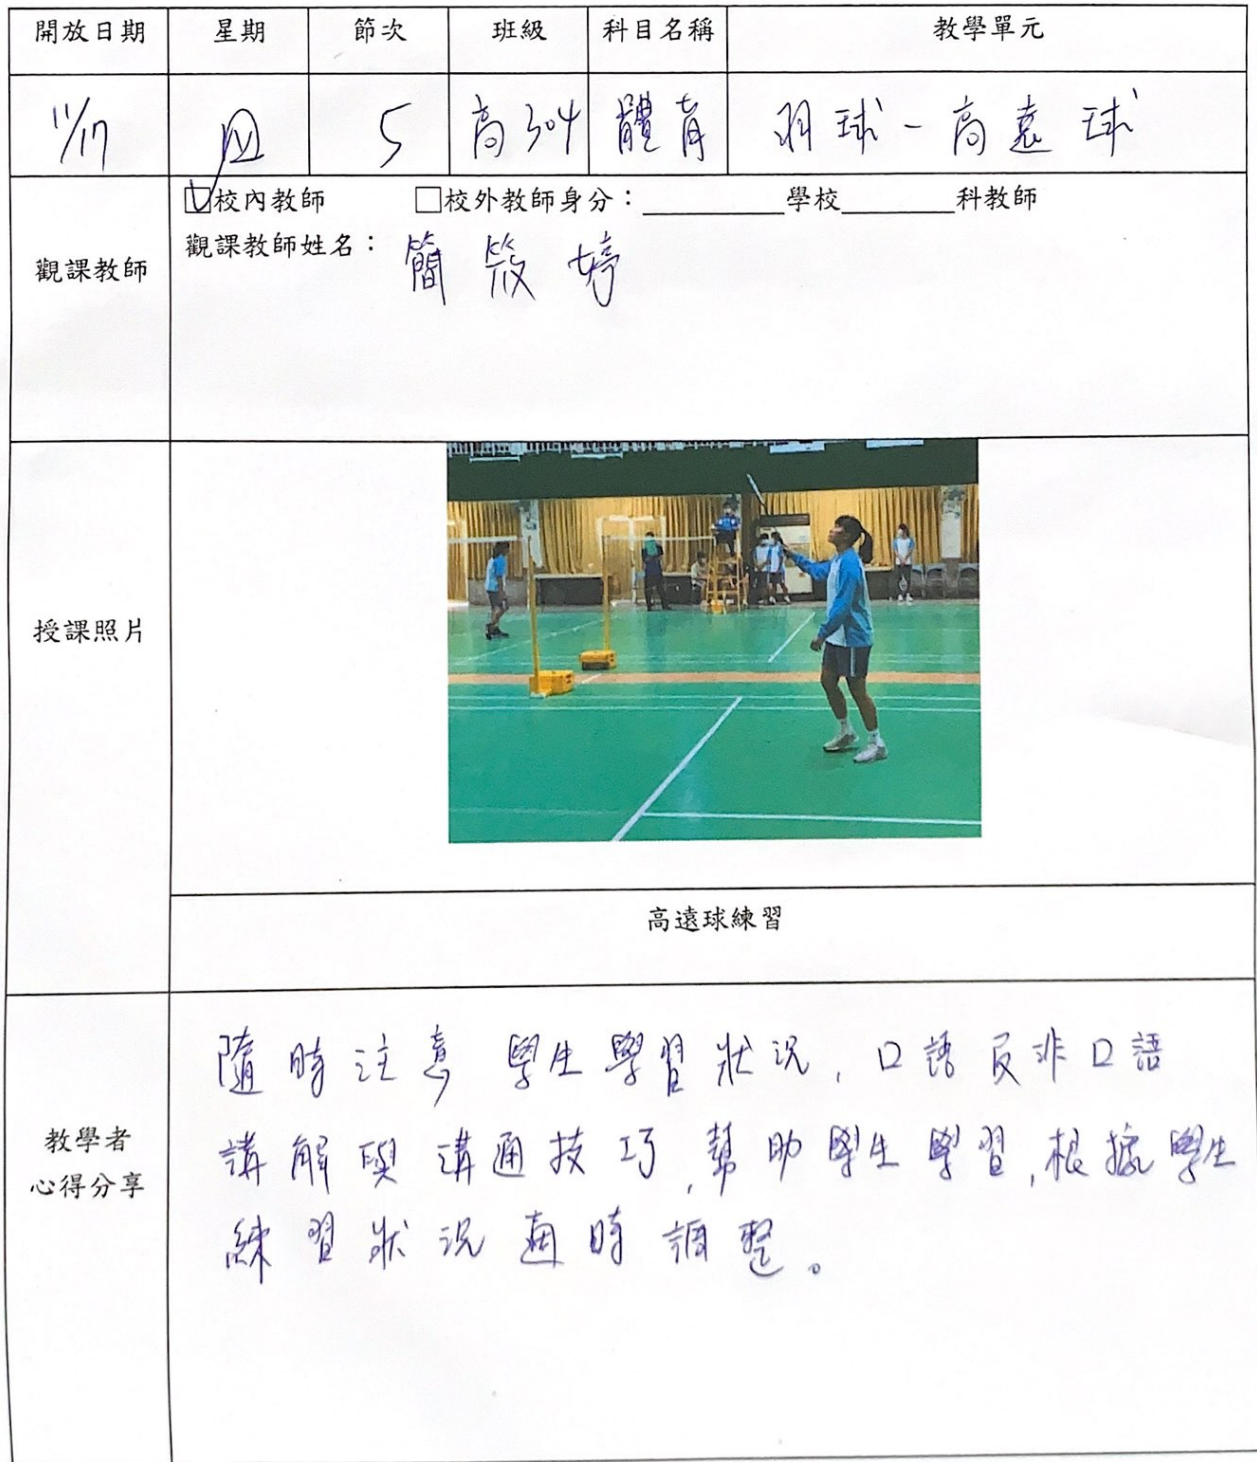 開放日期 星期 節次 班級 科目名稱 教學單元
11/17 四 5 高304 體育 羽球-高遠球
觀課教師
☑校內教師 □校外教師身分：__________學校________科教師
觀課教師姓名：簡筱婷
授課照片
高遠球練習
教學者
心得分享
隨時注意學生學習狀況，口語及非口語
講解與溝通技巧，幫助學生學習，根據學生
練習狀況適時調整。